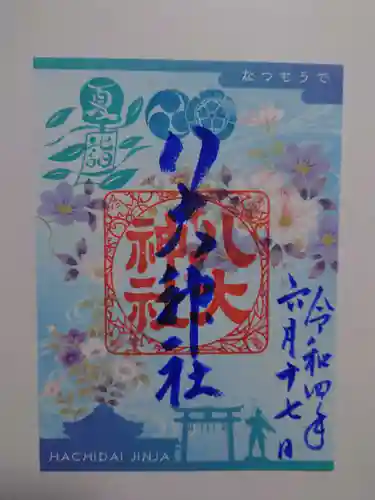 なつもうで
夏詣
八大神社
八大神社
令和四年
六月十七日
HACHIDAI JINJA